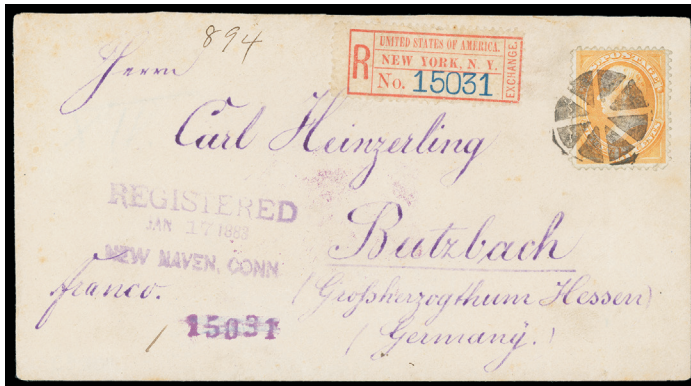 894
UNITED STATES OF AMERICA.
R NEW YORK, N. Y. EXCHANGE.
No. 15031
Herrn
Carl Heinzerling
REGISTERED
JAN 17 1883
NEW HAVEN, CONN
Butzbach
franco.
(Großherzogthum Hessen)
15031
(Germany.)